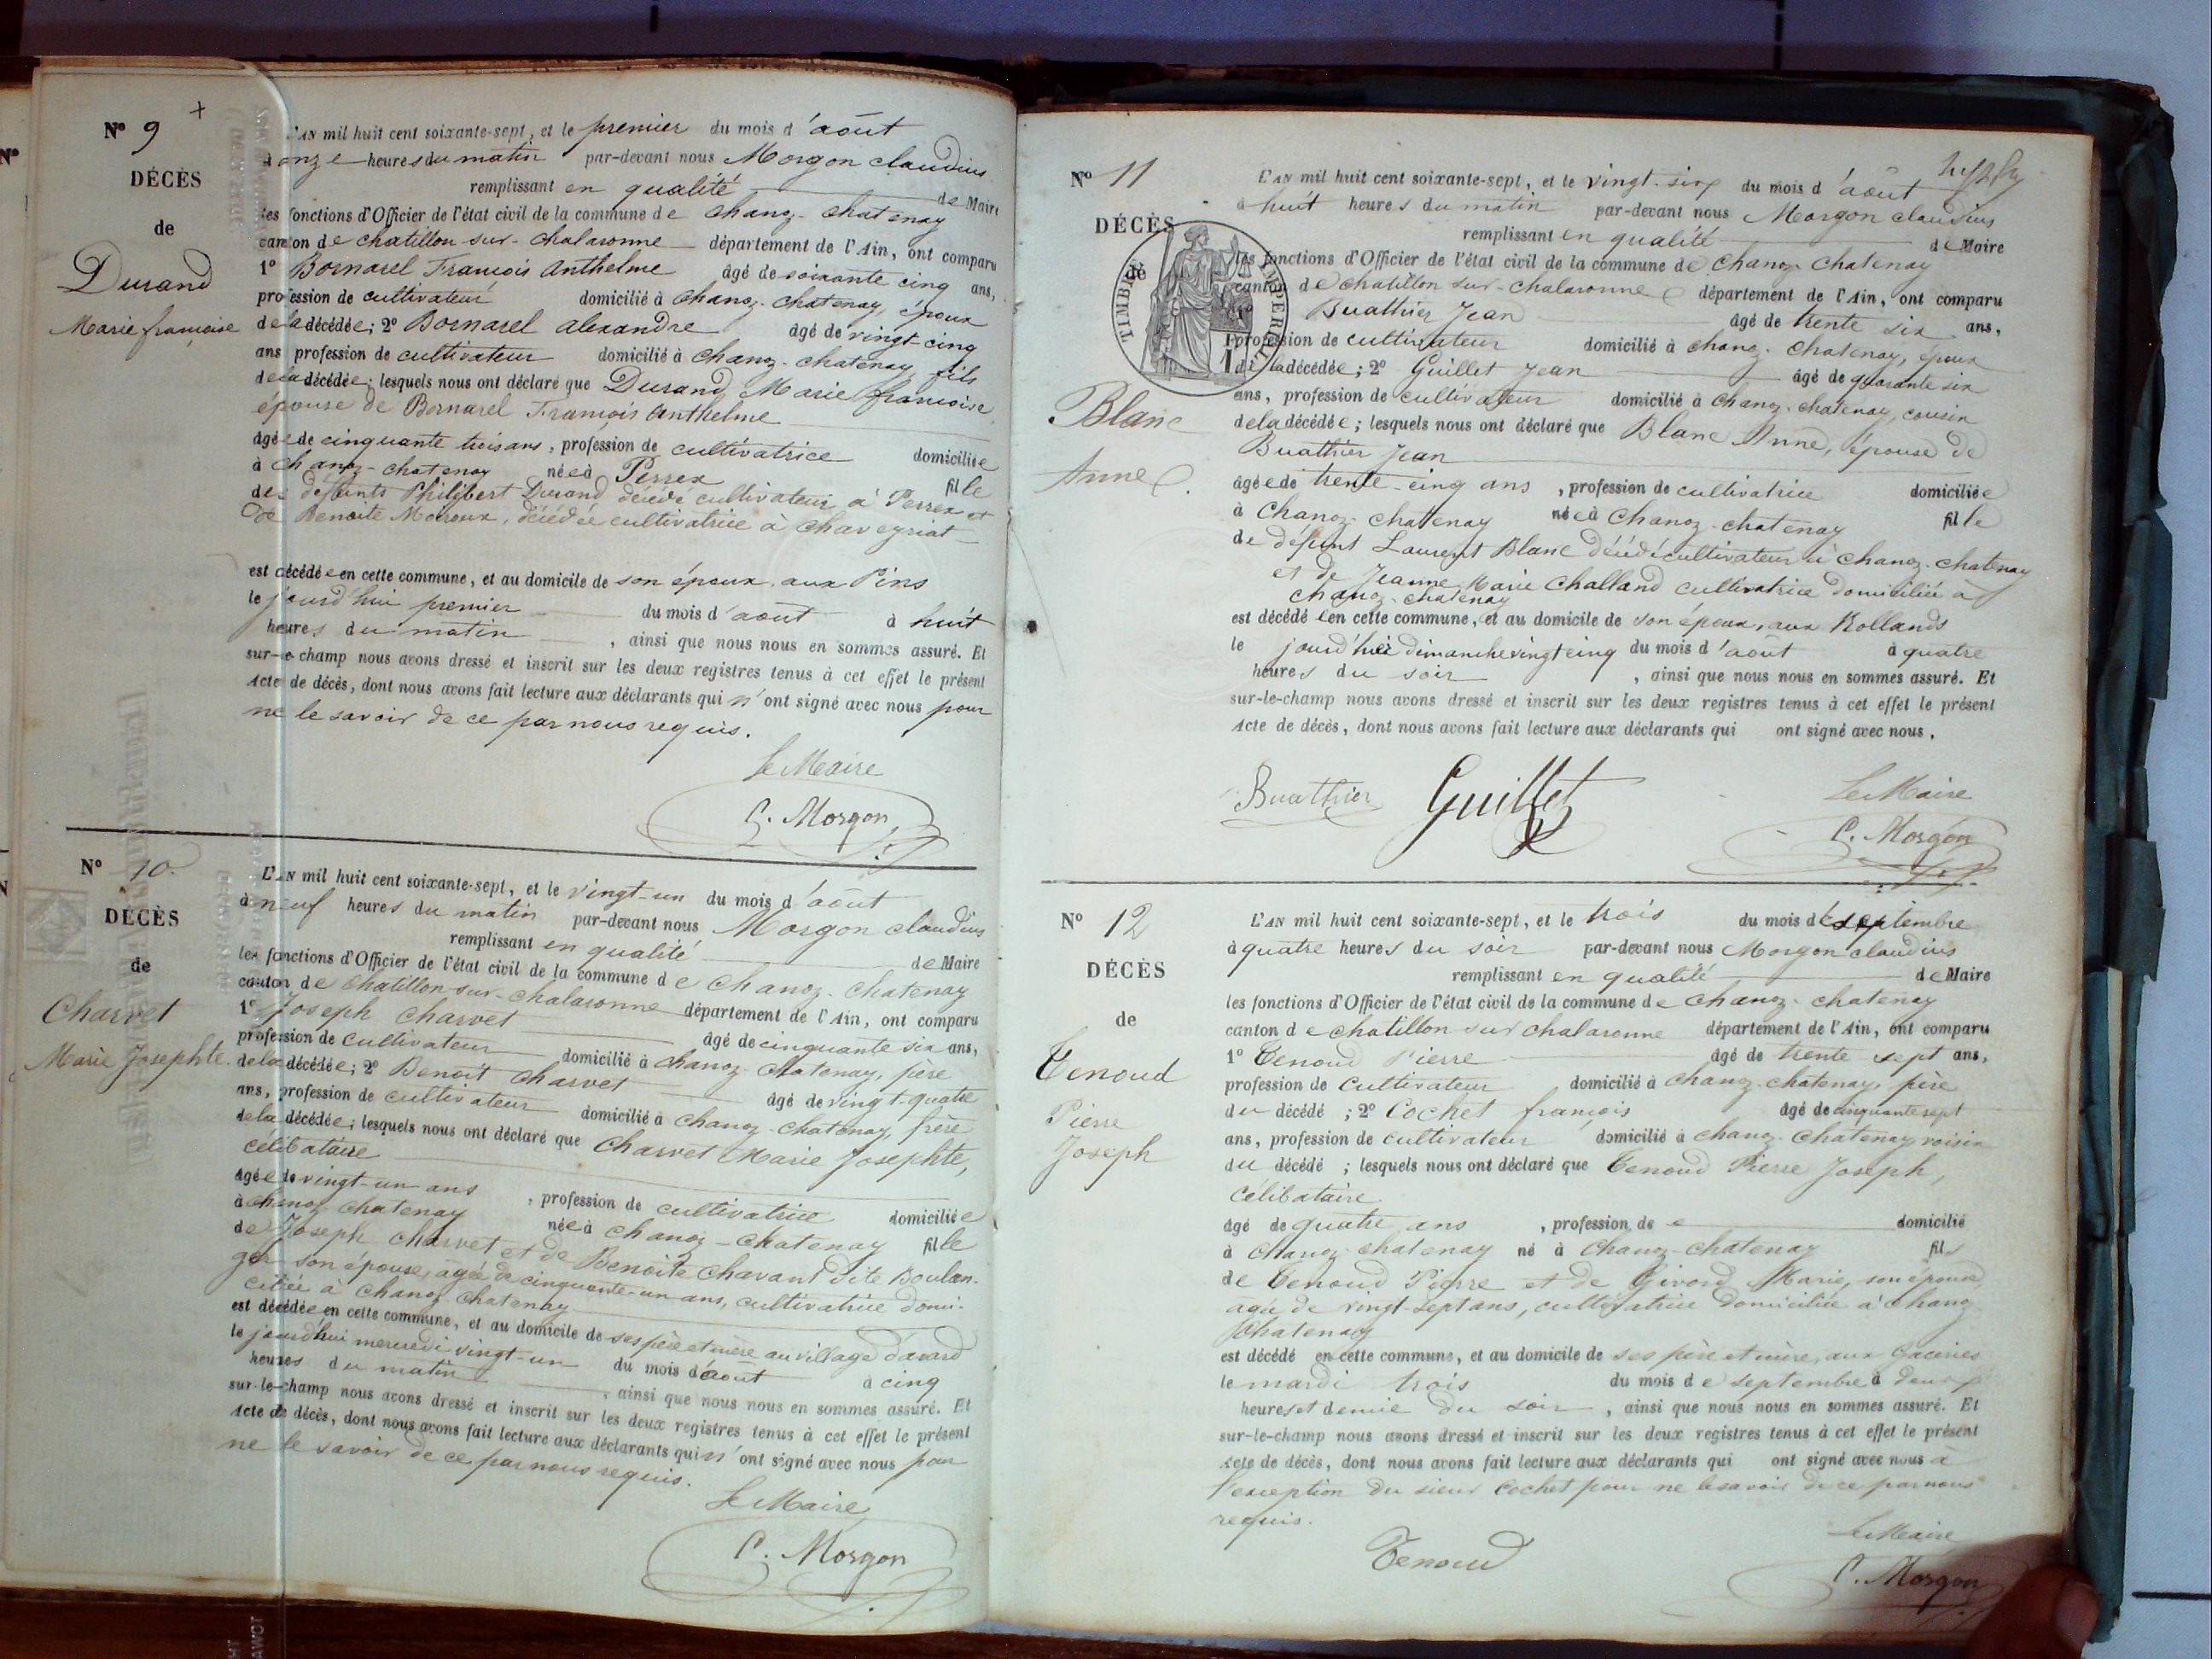 Nº 9 +
DÉCÈS
de
Durand
Marie françoise
L'AN mil huit cent soixante-sept, et le premier du mois d'août
à onze heures du matin par-devant nous Morgon claudius
remplissant en qualité de Maire
les fonctions d'Officier de l'état civil de la commune de Chanoz-Chatenay
canton de chatillon-sur-Chalaronne département de l'Ain, ont comparu
1º Bornarel François Anthelme âgé de soixante cinq ans,
profession de cultivateur domicilié à Chanoz-Chatenay, époux
de la décédée; 2º Bornarel alexandre âgé de vingt-cinq
ans profession de cultivateur domicilié à Chanoz-Chatenay fils
de la décédée; lesquels nous ont déclaré que Durand Marie françoise
épouse de Bornarel François Anthelme
âgée de cinquante trois ans, profession de cultivatrice domiciliée
à Chanoz-Chatenay née à Perrex fille
des défunts Philibert Durand décédé cultivateur à Perrex et
de Benoite Moiroux, décédée cultivatrice à Chaveyriat
est décédée en cette commune, et au domicile de son époux, aux Pins
le jourd'hui premier du mois d'août à huit
heures du matin, ainsi que nous nous en sommes assuré. Et
sur-le-champ nous avons dressé et inscrit sur les deux registres tenus à cet effet le présent
Acte de décès, dont nous avons fait lecture aux déclarants qui n'ont signé avec nous pour
ne le savoir de ce par nous requis.
Le Maire
C. Morgon
Nº 10.
DÉCÈS
de
Charvet
Marie Josephte.
L'AN mil huit cent soixante-sept, et le vingt-un du mois d'août
à neuf heures du matin par-devant nous Morgon claudius
remplissant en qualité de Maire
les fonctions d'Officier de l'état civil de la commune de Chanoz-Chatenay
canton de Chatillon-sur-Chalaronne département de l'Ain, ont comparu
1º Joseph Charvet âgé de cinquante six ans,
profession de cultivateur domicilié à Chanoz-Chatenay, père
de la décédée; 2º Benoit Charvet âgé de vingt-quatre
ans, profession de cultivateur domicilié à Chanoz-Chatenay, frère
de la décédée; lesquels nous ont déclaré que Charvet Marie Josephte,
célibataire
âgée de vingt-un ans, profession de cultivatrice domiciliée
à Chanoz Chatenay née à Chanoz-Chatenay fille
de Joseph Charvet et de Benoite Chavant dite Boulan-
ger son épouse, agée de cinquante-un ans, cultivatrice domi-
ciliée à Chanoz-Chatenay
est décédée en cette commune, et au domicile de ses père et mère au village d'avard
le jourd'hui mercredi vingt-un du mois d'août à cinq
heures du matin, ainsi que nous nous en sommes assuré. Et
sur-le-champ nous avons dressé et inscrit sur les deux registres tenus à cet effet le présent
Acte de décès, dont nous avons fait lecture aux déclarants qui n'ont signé avec nous pour
ne le savoir de ce par nous requis.
Le Maire
C. Morgon
Nº 11
DÉCÈS
de
TIMBRE IMPERIAL
Blanc
Anne
L'AN mil huit cent soixante-sept, et le vingt-six du mois d'août
à huit heures du matin par-devant nous Morgon claudius
remplissant en qualité de Maire
les fonctions d'Officier de l'état civil de la commune de Chanoz-Chatenay
canton de Chatillon-sur-Chalaronne département de l'Ain, ont comparu
1º Buathier Jean âgé de trente six ans,
profession de cultivateur domicilié à Chanoz-Chatenay, époux
de la décédée; 2º Guillet Jean âgé de quarante six
ans, profession de cultivateur domicilié à Chanoz-Chatenay, cousin
de la décédée; lesquels nous ont déclaré que Blanc Anne, épouse de
Buathier Jean
âgée de trente-cinq ans, profession de cultivatrice domiciliée
à Chanoz-Chatenay née à Chanoz-chatenay fille
de défunt Laurent Blanc décédé cultivateur à Chanoz-Chatenay
et de Jeanne Marie Challand cultivatrice domiciliée à
Chanoz-Chatenay
est décédée en cette commune, et au domicile de son époux, aux Rollands
le jourd'hier dimanche vingt cinq du mois d'août à quatre
heures du soir, ainsi que nous nous en sommes assuré. Et
sur-le-champ nous avons dressé et inscrit sur les deux registres tenus à cet effet le présent
Acte de décès, dont nous avons fait lecture aux déclarants qui ont signé avec nous.
Buathier Guillet
Le Maire
C. Morgon
Nº 12
DÉCÈS
de
Tenoud
Pierre
Joseph
L'AN mil huit cent soixante-sept, et le trois du mois de septembre
à quatre heures du soir par-devant nous Morgon claudius
remplissant en qualité de Maire
les fonctions d'Officier de l'état civil de la commune de Chanoz-Chatenay
canton de chatillon sur chalaronne département de l'Ain, ont comparu
1º Tenoud Pierre âgé de trente sept ans,
profession de Cultivateur domicilié à Chanoz-Chatenay, père
du décédé; 2º Cochet françois âgé de cinquante sept
ans, profession de cultivateur domicilié à Chanoz-Chatenay voisin
du décédé; lesquels nous ont déclaré que Tenoud Pierre Joseph,
célibataire
âgé de quatre ans, profession de domicilié
à Chanoz-Chatenay né à Chanoz-Chatenay fils
de Tenoud Pierre et de Givord Marie, son épouse,
agée de vingt-sept ans, cultivatrice domiciliée à Chanoz
Chatenay
est décédé en cette commune, et au domicile de ses père et mère, aux
le mardi trois du mois de septembre à deux
heures et demie du soir, ainsi que nous nous en sommes assuré. Et
sur-le-champ nous avons dressé et inscrit sur les deux registres tenus à cet effet le présent
Acte de décès, dont nous avons fait lecture aux déclarants qui ont signé avec nous à
l'exception du sieur Cochet pour ne le savoir de ce par nous
requis.
Tenoud
Le Maire
C. Morgon